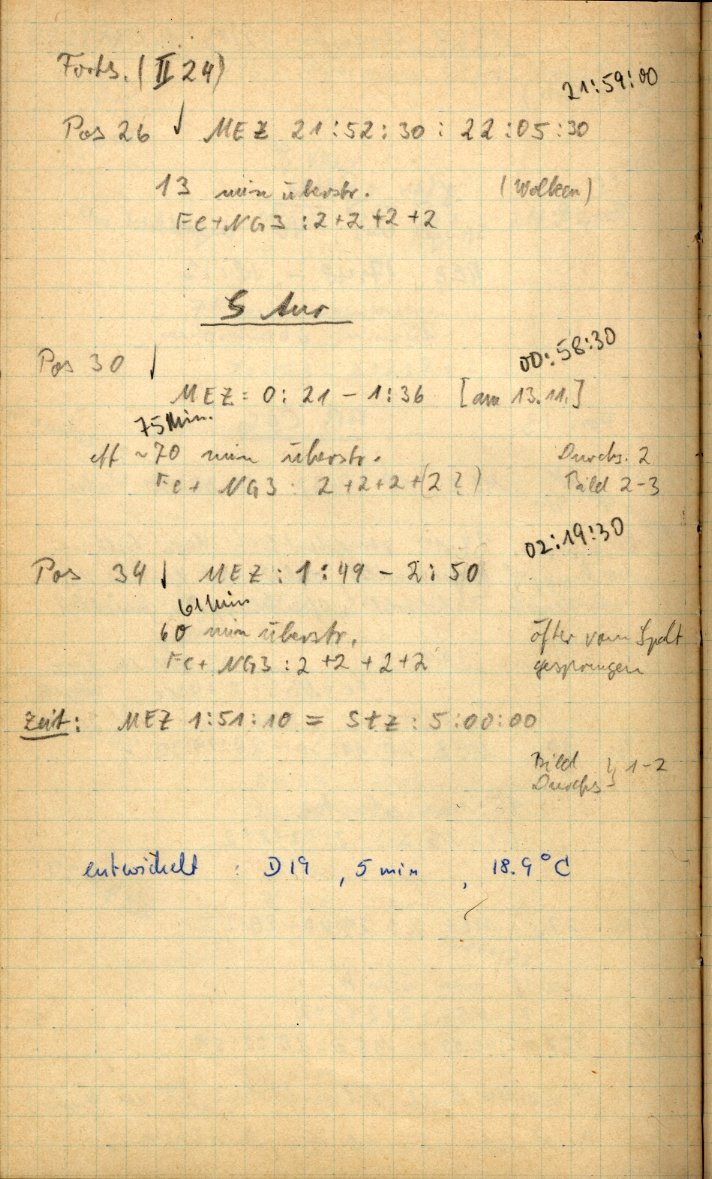 Forts. (II 24)
21:59:00
Pos 26 ↓ MEZ 21:52:30 : 22:05:30
13 min überstr. (Wolken)
Fe+NG3 : 2+2+2+2
Aur
Pos 30 ↓
00:58:30
MEZ = 0:21 - 1:36 [am 13.11.]
75 Min.
eff ~70 min überstr. Durchs. 2
Fe + NG3 : 2+2+2+(2?) Bild 2-3
02:19:30
Pos 34 ↓ MEZ : 1:49 - 2:50
61 Min
60 min überstr. öfter vom Spalt
Fe+ NG3 : 2+2+2+2 gesprungen
Zeit: MEZ 1:51:10 = Stz : 5:00:00
Bild } 1-2
Durchs
entwickelt : D19 , 5 min , 18.9°C